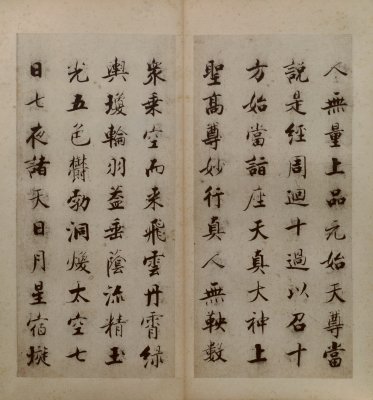 人無量上品元始天尊當
說是經周迴十過以召十
方始當詣座天真大神上
聖高尊妙行真人無鞅數
衆乗空而来飛雲丹霄緑
輿瓊輪羽蓋垂蔭流精玉
光五色欝勃洞煥太空七
日七夜諸天日月星宿璇